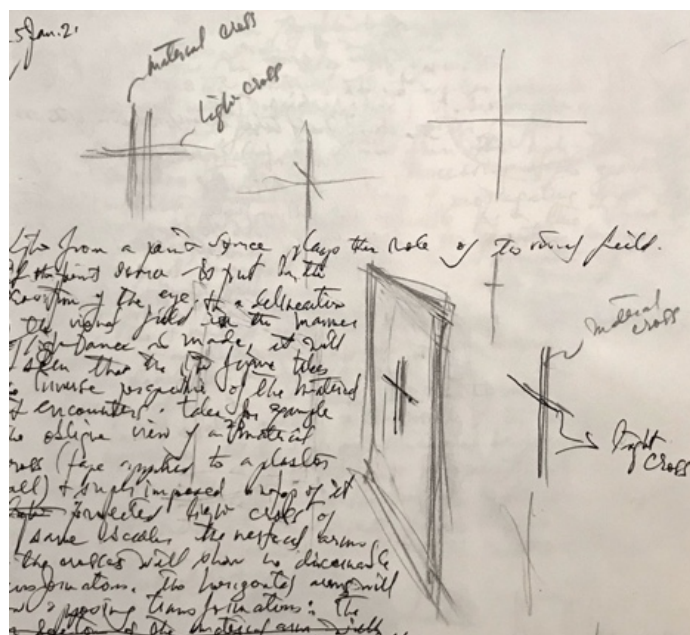 5 Jan. 2.
material cross
light cross
from a point source plays the role of the visual field.
point source is put in the
position of the eye & a delineation
the visual field in the manner
is made, it will
seen that the form takes
inverse perspective of the material
it encounters. take for example
oblique view of a material
cross (tape applied to a plaster
wall) & superimposed on top of it
projected light cross of
same the vertical arms
the crosses will show no discernable
transformation. The horizontal arms will
opposing transformations: the
of the material arm
material
cross
light
cross